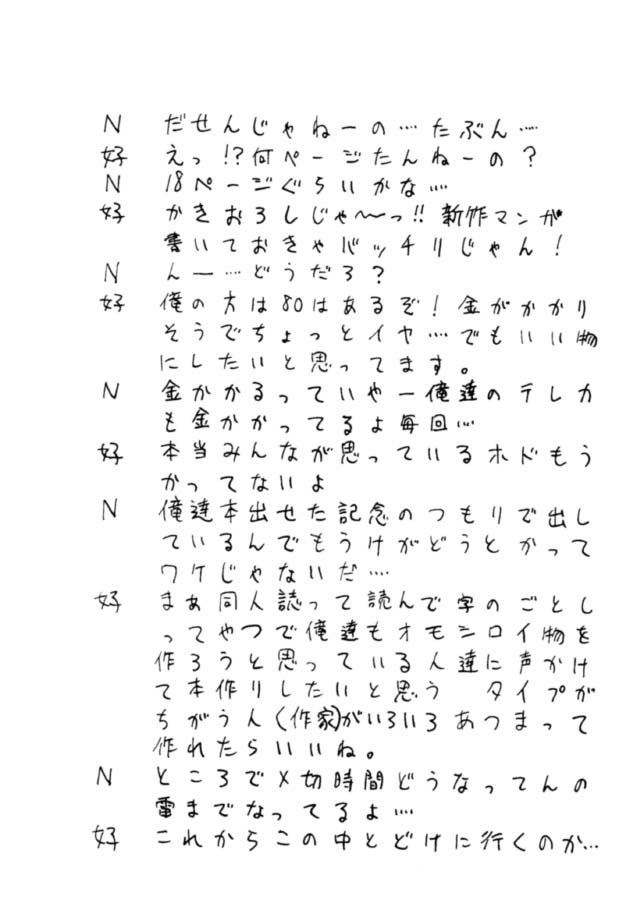 N だせんじゃねーの…たぶん…
好 えっ!?何ページたんねーの?
N 18ページぐらいかな…
好 かきおろしじゃ〜っ!!新作マンが
書いておきゃバッチリじゃん!
N んー…どうだろ?
好 俺の方は80はあるぞ!金がかかり
そうでちょっとイヤ…でもいい物
にしたいと思ってます。
N 金かかるっていやー俺達のテレカ
も金かかってるよ毎回…
好 本当みんなが思っているホドもう
かってないよ
N 俺達本出せた記念のつもりで出し
ているんでもうけがどうとかって
ワケじゃないだ…
好 まぁ同人誌って読んで字のごとし
ってやつで俺達もオモシロイ物を
作ろうと思っている人達に声かけ
て本作りしたいと思う タイプが
ちがう人(作家)がいろいろあつまって
作れたらいいね。
N ところで〆切時間どうなってんの
雷までなってるよ…
好 これからこの中とどけに行くのか…